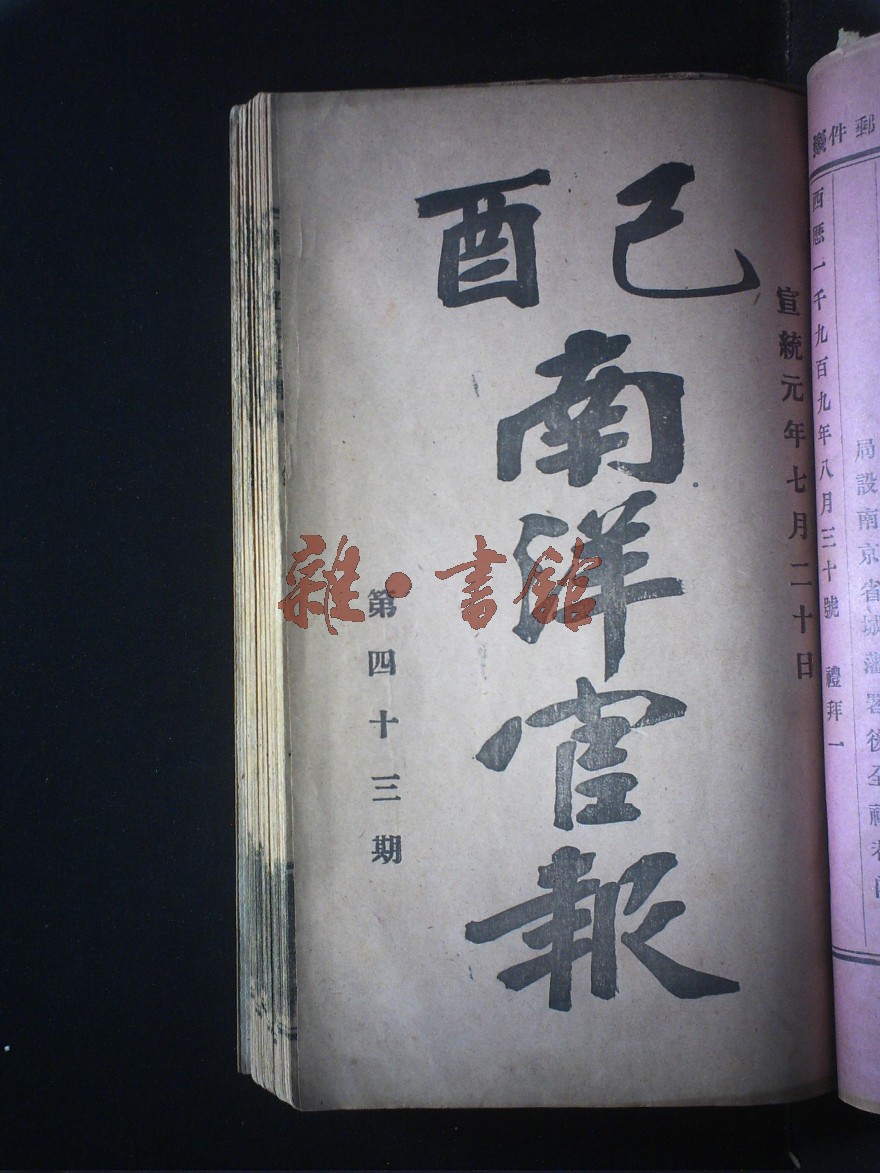 郵件
局設南京省城藩署後
西曆一千九百九年八月三十號 禮拜一
宣統元年七月二十日
己酉
南洋官報
第四十三期
雜·書館